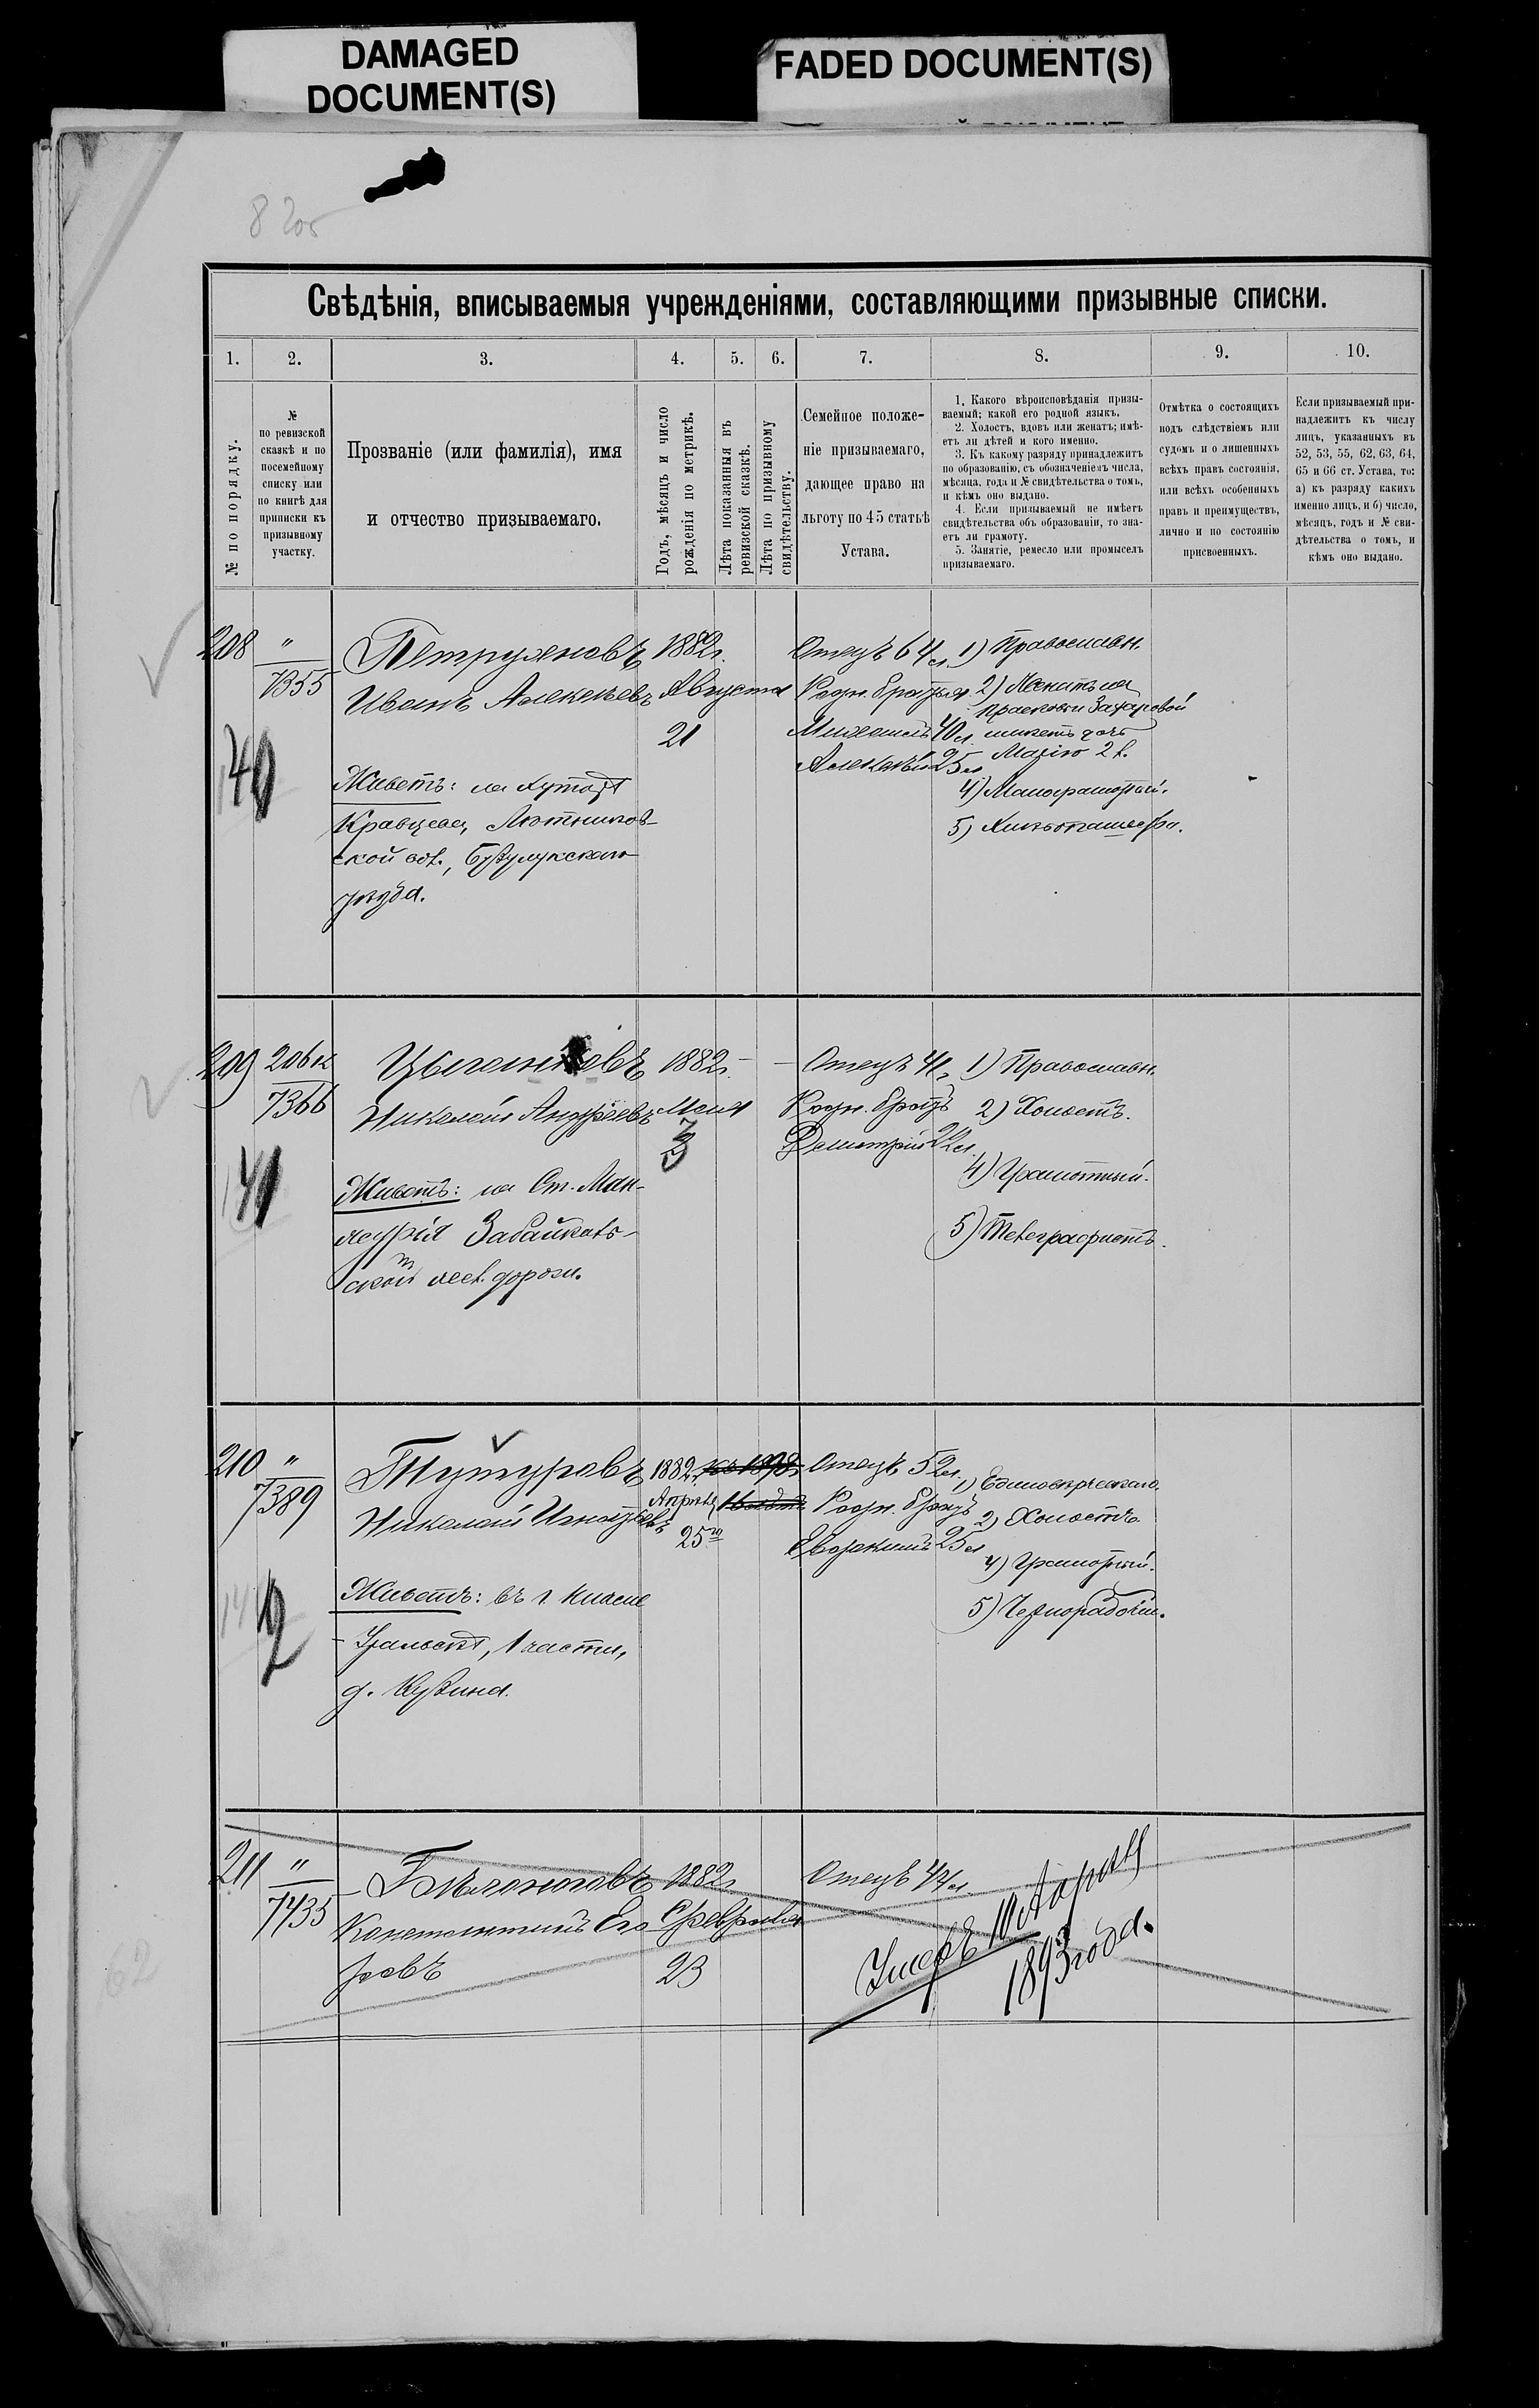 DAMAGED
DOCUMENT(S)
FADED DOCUMENT(S)
Свѣдѣнія, вписываемыя учрежденіями, составляющими призывные списки.
1.
2.
3.
4.
5.
6.
7.
8.
9.
10.
№ по порядку.
№
по ревизской
сказкѣ и по
посемейному
списку или
по книгѣ для
приписки къ
призывному
участку.
Прозваніе (или фамилія), имя
и отчество призываемаго.
Годъ, мѣсяцъ и число
рожденія по метрикѣ.
Лѣта показанныя въ
ревизской сказкѣ.
Лѣта по призывному
свидѣтельству.
Семейное положе-
ніе призываемаго,
дающее право на
льготу по 45 статьѣ
Устава.
1. Какого вѣроисповѣданія призы-
ваемый; какой его родной языкъ.
2. Холостъ, вдовъ или женатъ; имѣ-
етъ ли дѣтей и кого именно.
3. Къ какому разряду принадлежитъ
по образованію, съ обозначеніемъ числа,
мѣсяца, года и № свидѣтельства о томъ,
и кѣмъ оно выдано.
4. Если призываемый не имѣетъ
свидѣтельства объ образованіи, то зна-
етъ ли грамоту.
5. Занятіе, ремесло или промыселъ
призываемаго.
Отмѣтка о состоящихъ
подъ слѣдствіемъ или
судомъ и о лишенныхъ
всѣхъ правъ состоянія,
или всѣхъ особенныхъ
правъ и преимуществъ,
лично и по состоянію
присвоенныхъ.
Если призываемый при-
надлежитъ къ числу
лицъ, указанныхъ въ
52, 53, 55, 62, 63, 64,
65 и 66 ст. Устава, то:
а) къ разряду какихъ
именно лицъ, и б) число,
мѣсяцъ, годъ и № сви-
дѣтельства о томъ, и
кѣмъ оно выдано.
208
"
7355
140
Иванъ Алексѣевъ
Живетъ: на хуторѣ
Кравцова,
ской вол., Бузулукскаго
уѣзда.
1882г.
Августа
21
Отецъ 64 л.
Родн. братья
Михаилъ 40 л.
Алексѣй 25 л.
1) Православн.
2) Женатъ на
Прасковьи Захаровой
имѣетъ дочь
Марію 2 л.
4) Малограмотный.
5) Хлѣбопашество.
209
7366
141
Цыганковъ
Николай Андреевъ
Живетъ: на Ст. Ман-
журія Забайкаль-
ской жел. дороги.
1882г.
Мая
3
Отецъ 41.
Родн. братъ
Димитрій 22 л.
1) Православн.
2) Холостъ.
4) Грамотный.
5) Телеграфистъ.
210
"
7389
142
Тутуровъ
Николай Игнатьевъ
Живетъ: въ г.
Уральскѣ, 1 части,
д. Кузина.
1882
Апрѣля
25го
Отецъ 52 л.
Родн. братъ
25 л.
1) Единовѣрческаго.
2) Холостъ
4) Грамотный.
5) Чернорабочій.
211
"
7435
Бѣлоноговъ
Константинъ Его-
ровъ
1882г.
Февраля
23
Отецъ 44 л.
Умеръ 10 Апрѣля
1893 года.
62